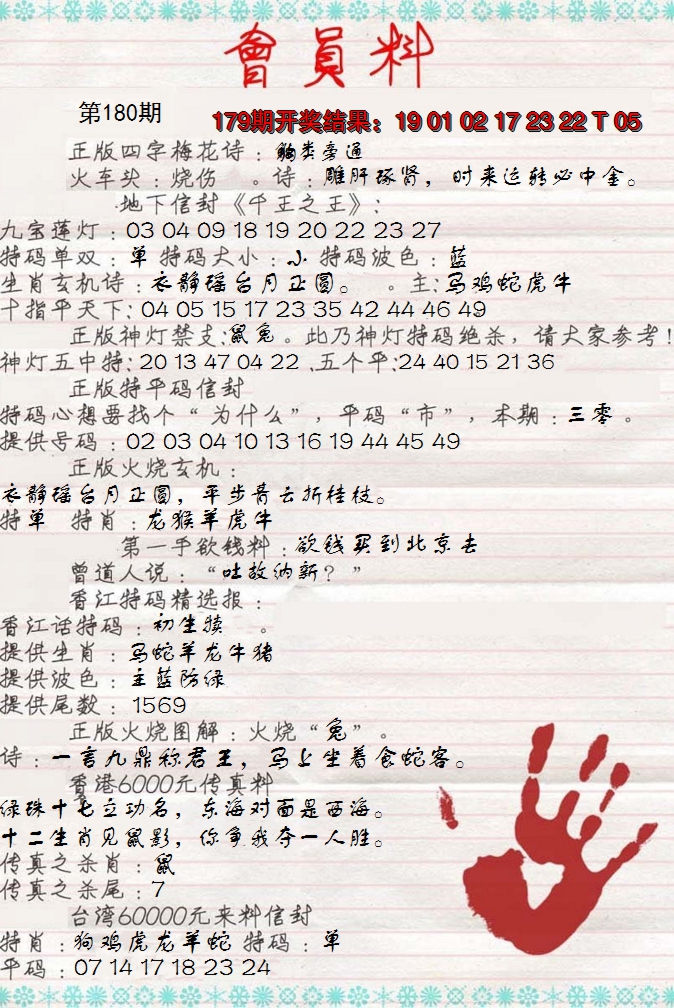 會員料
第180期
179期开奖结果：19 01 02 17 23 22 T 05
正版四字梅花诗：触类旁通
火车头：烧伤 。诗：雕肝琢肾，时来运转必中金。
地下信封《千王之王》：
九宝莲灯：03 04 09 18 19 20 22 23 27
特码单双：单 特码大小：小 特码波色：蓝
生肖玄机诗：衣静瑶台月正圆。 。主：马鸡蛇虎牛
十指平天下：04 05 15 17 23 35 42 44 46 49
正版神灯禁支：鼠兔。此乃神灯特码绝杀，请大家参考！
神灯五中特：20 13 47 04 22 .五个平：24 40 15 21 36
正版特平码信封
特码心想要找个“为什么”，平码“市”，本期：三零。
提供号码：02 03 04 10 13 16 19 44 45 49
正版火烧玄机：
衣静瑶台月正圆，平步青云折桂枝。
特单 特肖：龙猴羊虎牛
第一手欲钱料：欲钱买到北京去
曾道人说：“吐故纳新？”
香江特码精选报：
香江话特码：初生犊 。
提供生肖：马蛇羊龙牛猪
提供波色：主蓝防绿
提供尾数：1569
正版火烧图解：火烧“兔”。
诗：一言九鼎称君王，马上坐着食蛇客。
香港6000元传真料
绿珠十七立功名，东海对面是西海。
十二生肖见鼠影，你争我夺一人胜。
传真之杀肖：鼠
传真之杀尾：7
台湾60000元来料信封
特肖：狗鸡虎龙羊蛇 特码：单
平码：07 14 17 18 23 24